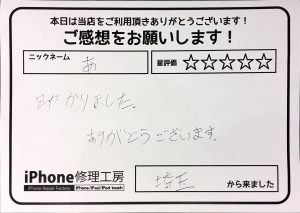 本日は当店をご利用頂きありがとうございます！
ご感想をお願いします！
ニックネーム あ
星評価 ☆☆☆☆☆
助かりました。
ありがとうございます。
iPhone修理工房
iPhone Repair Factory iPhone/iPad/iPod touch
埼玉 から来ました